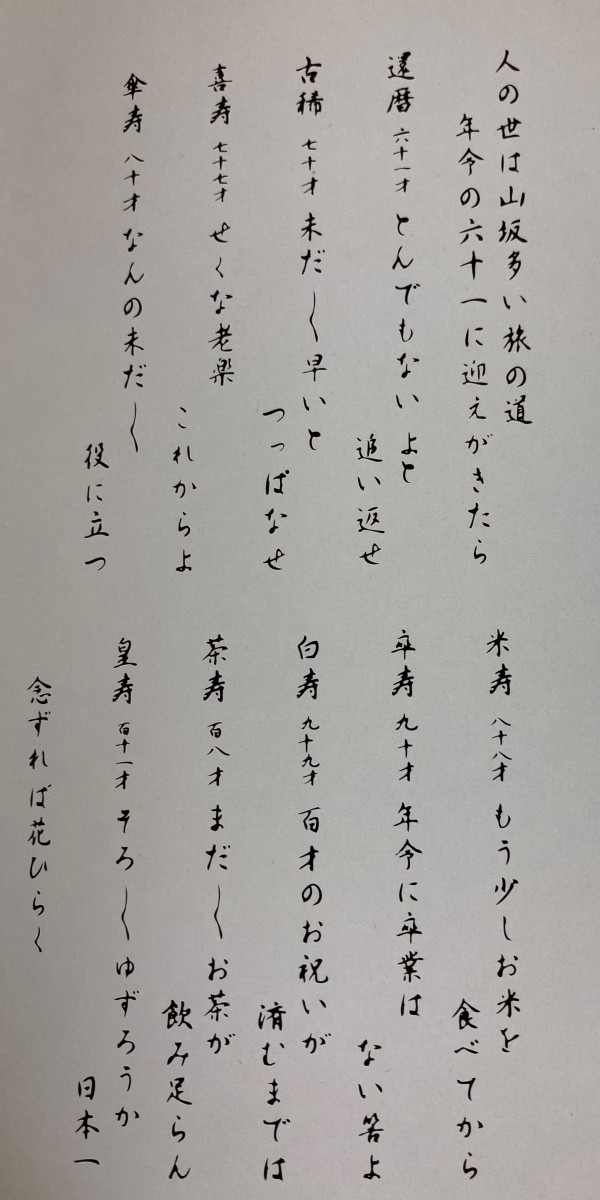 人の世は山坂多い旅の道
年令の六十一に迎えがきたら
還暦 六十一才 とんでもないよと
追い返せ
古稀 七十才 未だ〳〵早いと
つっぱなせ
喜寿 七十七才 せくな老楽
これからよ
傘寿 八十才 なんの未だ〳〵
役に立つ
米寿 八十八才 もう少しお米を
食べてから
卒寿 九十才 年令に卒業は
ない筈よ
白寿 九十九才 百才のお祝いが
済むまでは
茶寿 百八才 まだ〳〵お茶が
飲み足らん
皇寿 百十一才 そろ〳〵ゆずろうか
日本一
念ずれば花ひらく